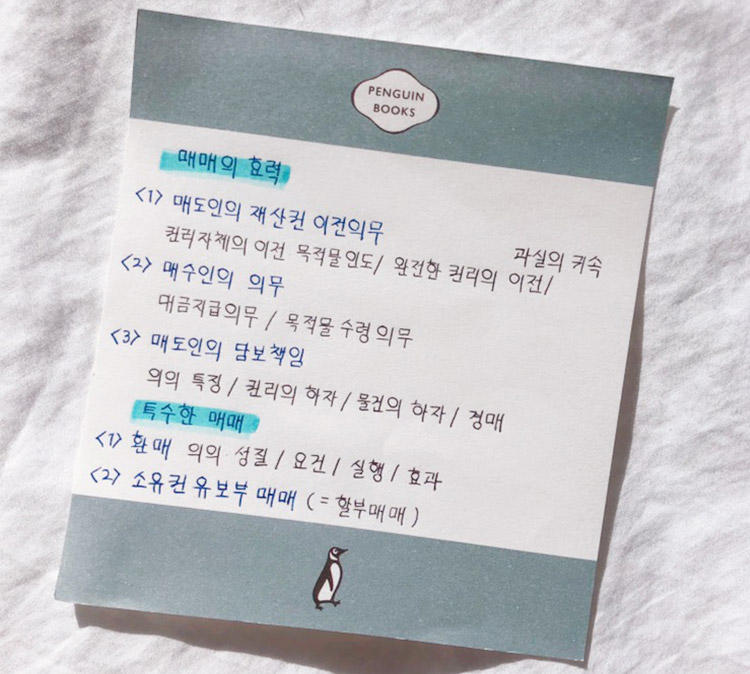 PENGUIN
BOOKS
매매의 효력
<1> 매도인의 재산권 이전의무
권리자체의 이전 목적물인도/ 완전한 권리의 이전/ 과실의 귀속
<2> 매수인의 의무
대금지급의무 / 목적물 수령의무
<3> 매도인의 담보책임
의의 특징 / 권리의 하자 / 물건의 하자 / 경매
특수한 매매
<1> 환매 의의 성질 / 요건 / 실행 / 효과
<2> 소유권유보부매매 (= 할부매매)